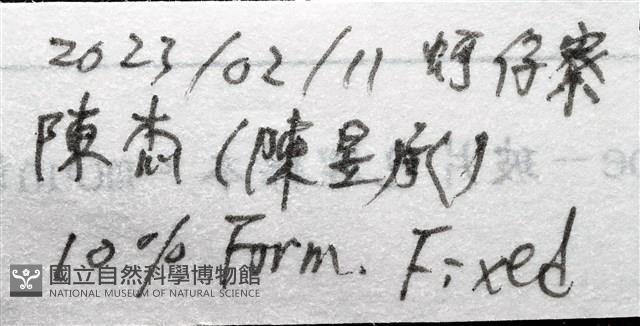 2023/02/11 蚵仔寮
陳杰 (陳昱承)
10% Form. Fixed
國立自然科學博物館
NATIONAL MUSEUM OF NATURAL SCIENCE